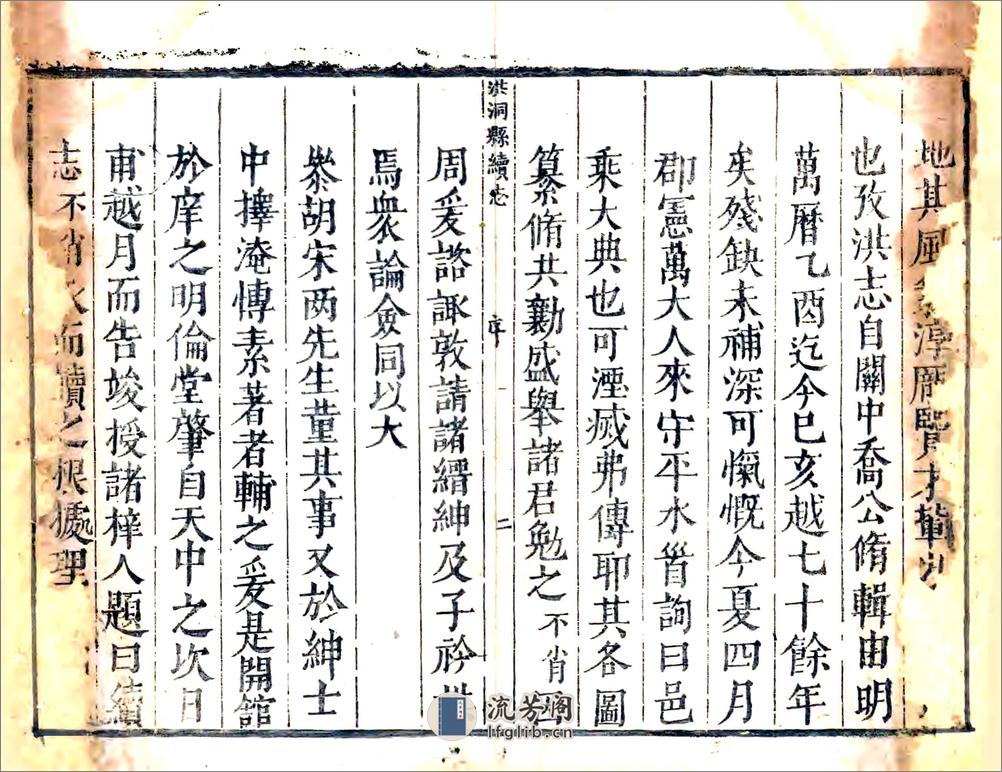 地其風淳厖賢才輩出
也攷洪志自關中喬公脩輯由明
萬曆乙酉迄今已亥越七十餘年
矣殘缺未補深可愾慨今夏四月
郡憲萬大人來守平水首詢曰邑
乘大典也可湮滅弗傳耶其各圖
纂脩共勷盛舉諸君勉之不肖
洪洞縣續志 序 二
周爰諮諏敦請諸縉紳及子衿
焉衆論僉同以大
叅胡宋两先生董其事又於紳士
中擇淹慱素著者輔之爰是開館
於庠之明倫堂肇自天中之次日
甫越月而告竣授諸梓人題曰續
志不肖而續之根據理
流芳阁
lfglib.cn